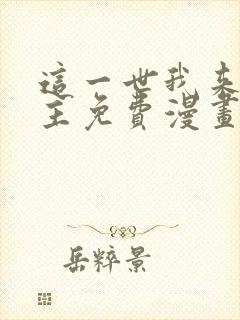 這一世我來
主免費漫畫
岳粹景